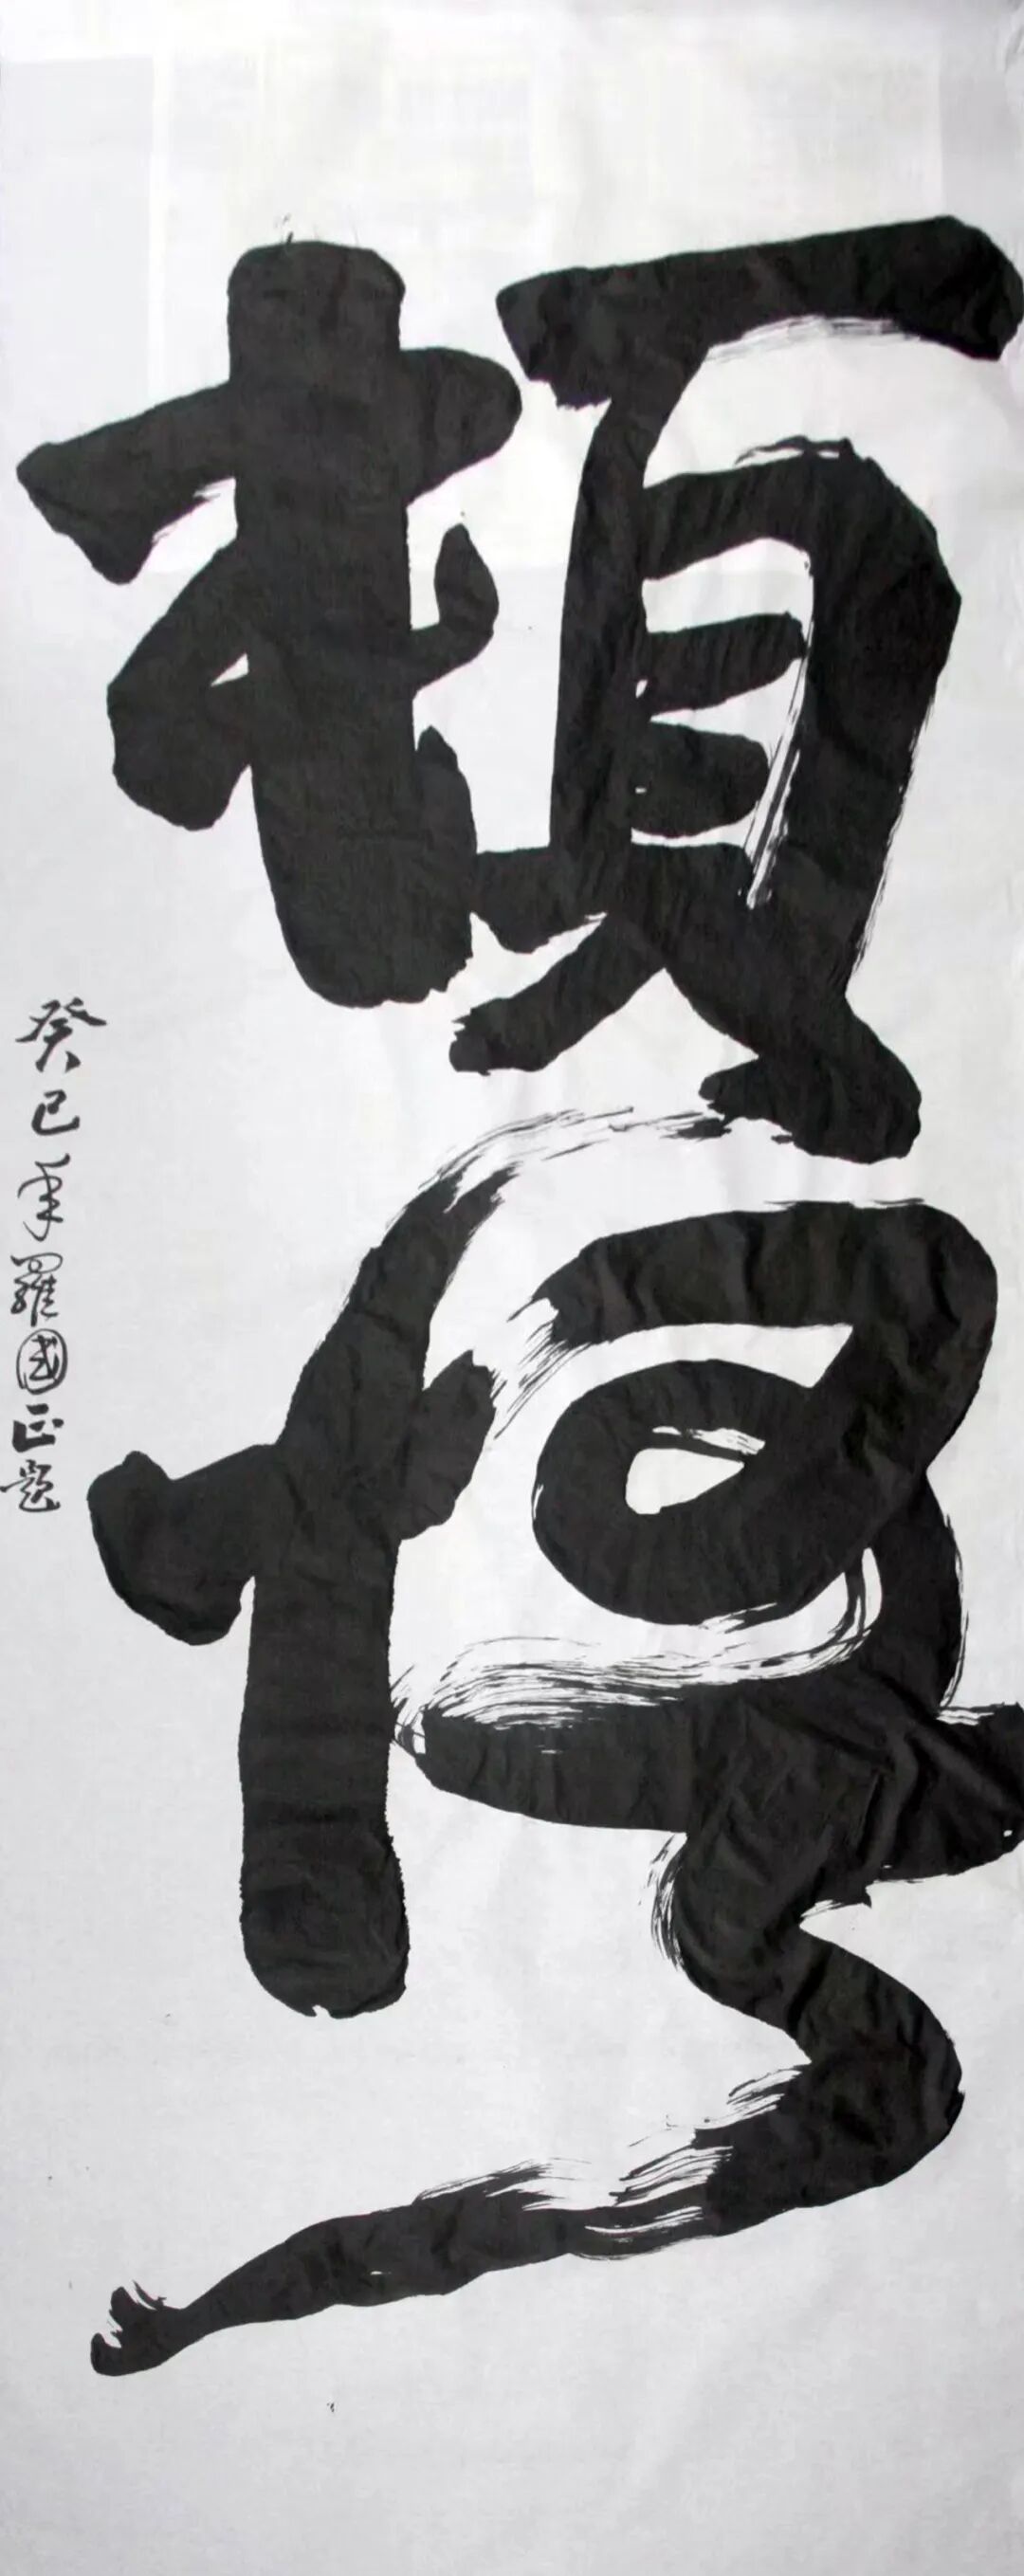 頓悟
癸巳年羅國正題